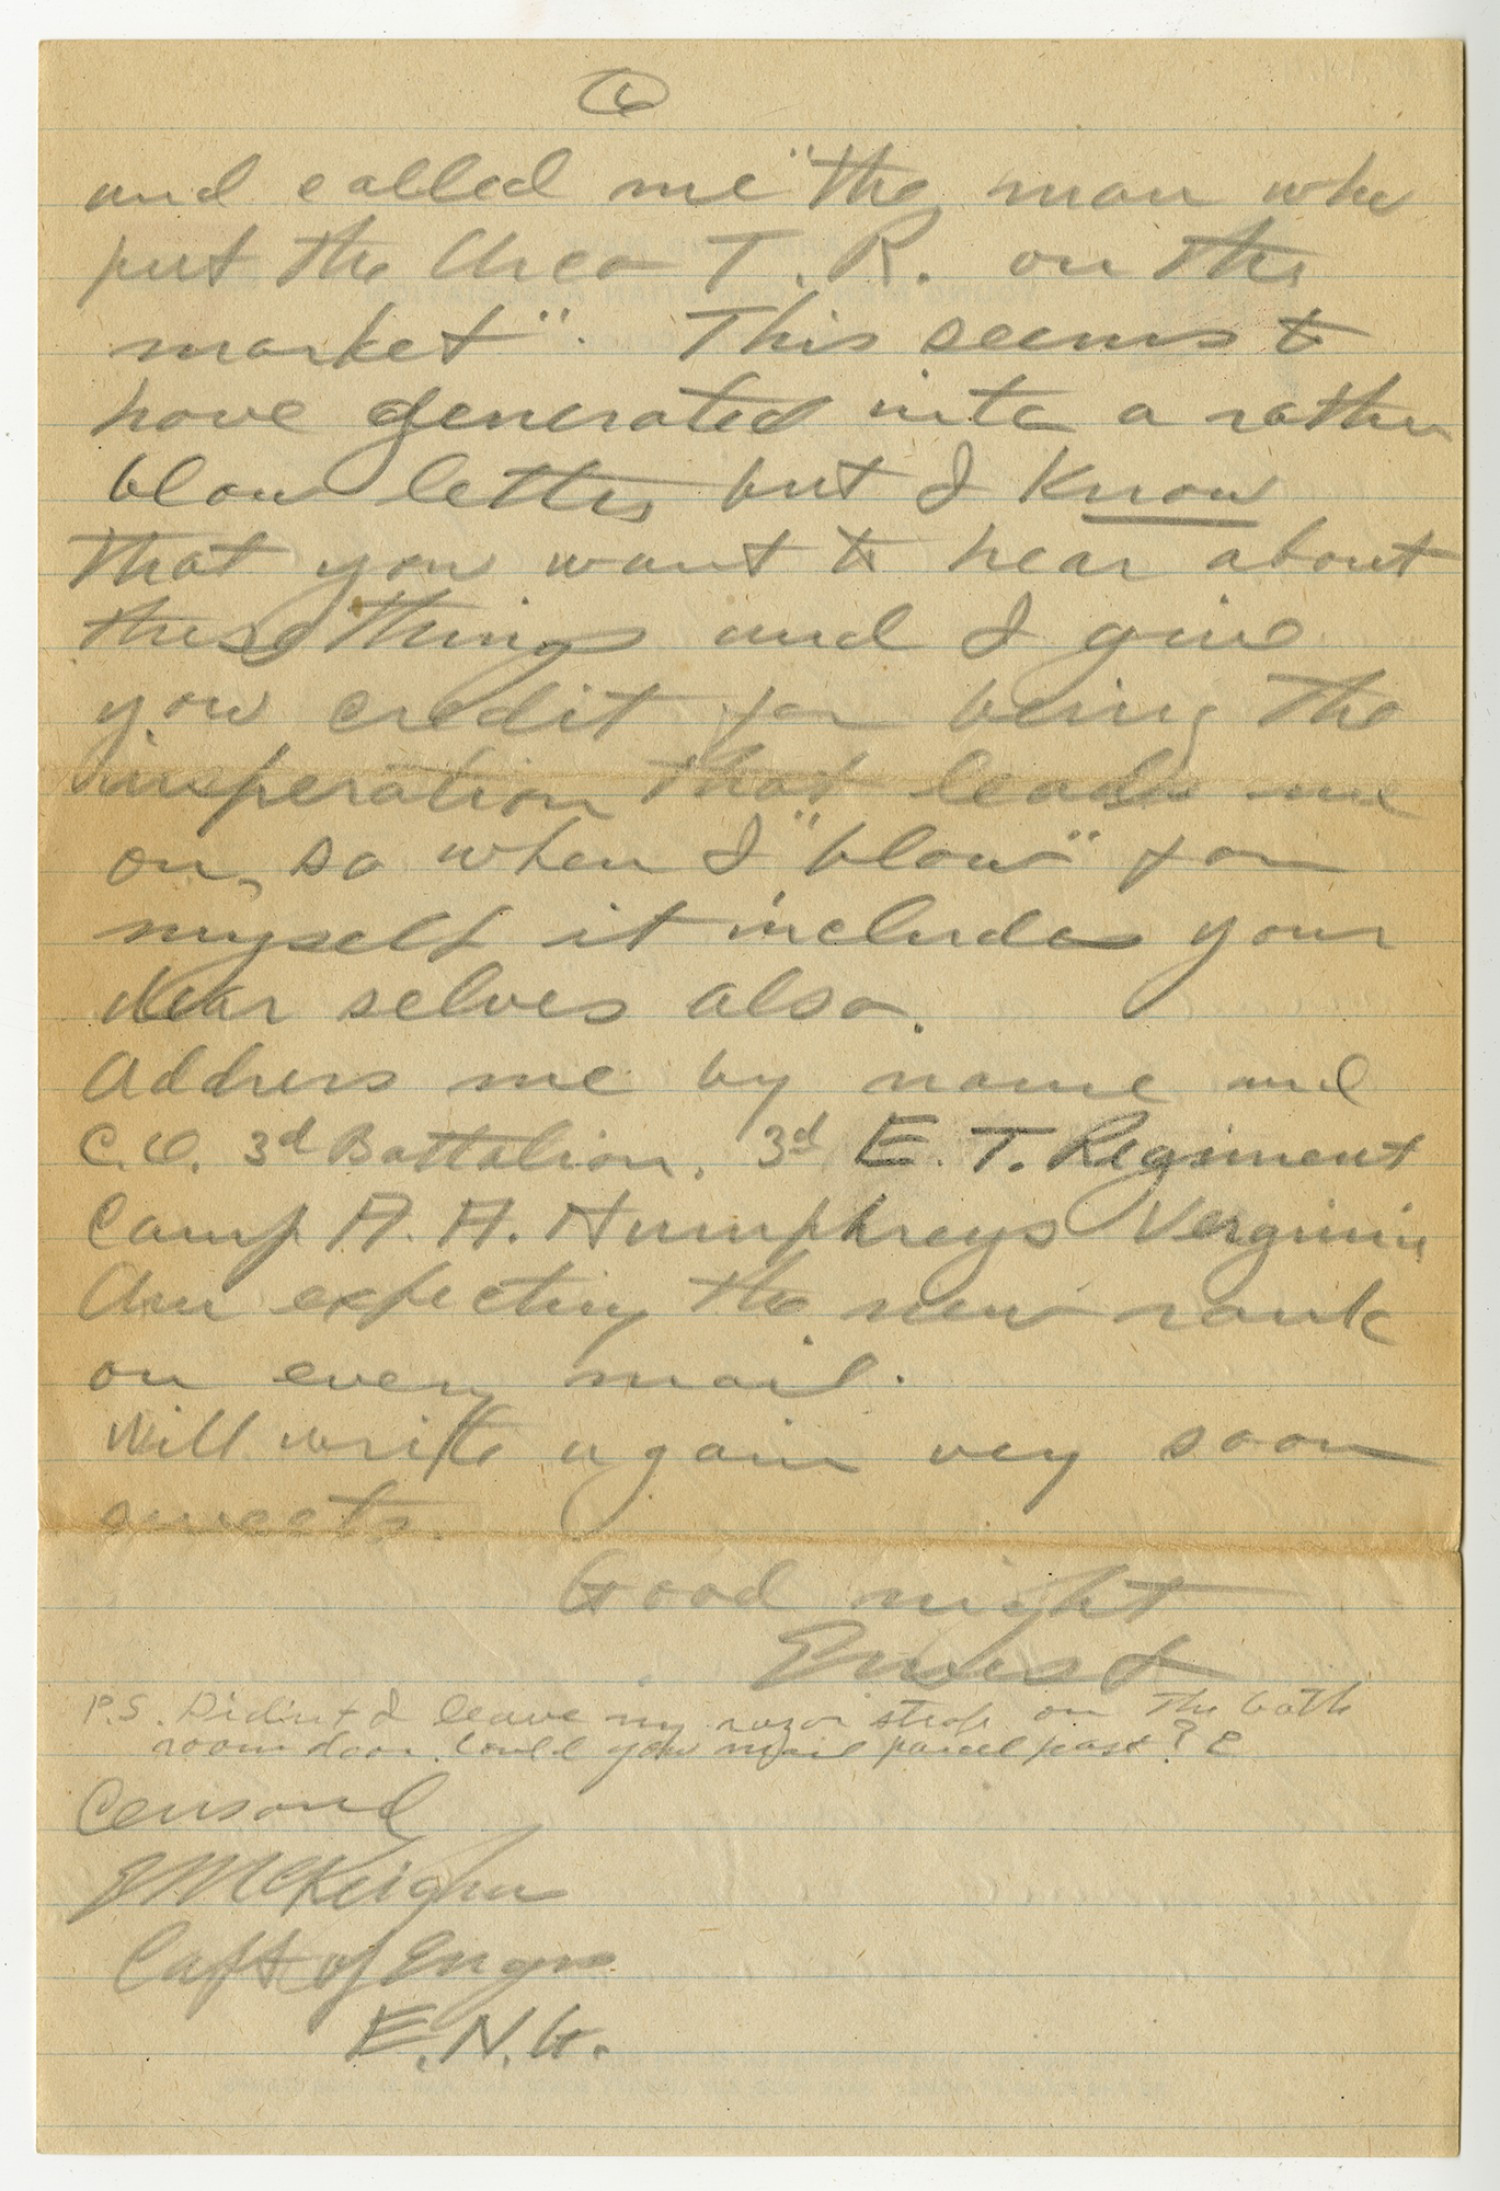 6
and called me "the man who
put the Area T. R. on the
market". This seems to
have generated into a rather
blow letter, but I know
that you want to hear about
these things and I give
you credit for being the
insperation that leads me
on, so when I "blow" for
myself it includes your
dear selves also.
Address me by name and
C.O. 3d Battalion, 3d E. T. Regiment
Camp A. A. Humphreys Verginia
Am expecting the new rank
on every mail.
Will write again very soon
sweets.
Good night
Ernest
P.S. Didint I leave my razor strop on the bath
room door. Could you mail parcel post? E
Censored
E McKeighn
Capt of Engrs
E.N.G.